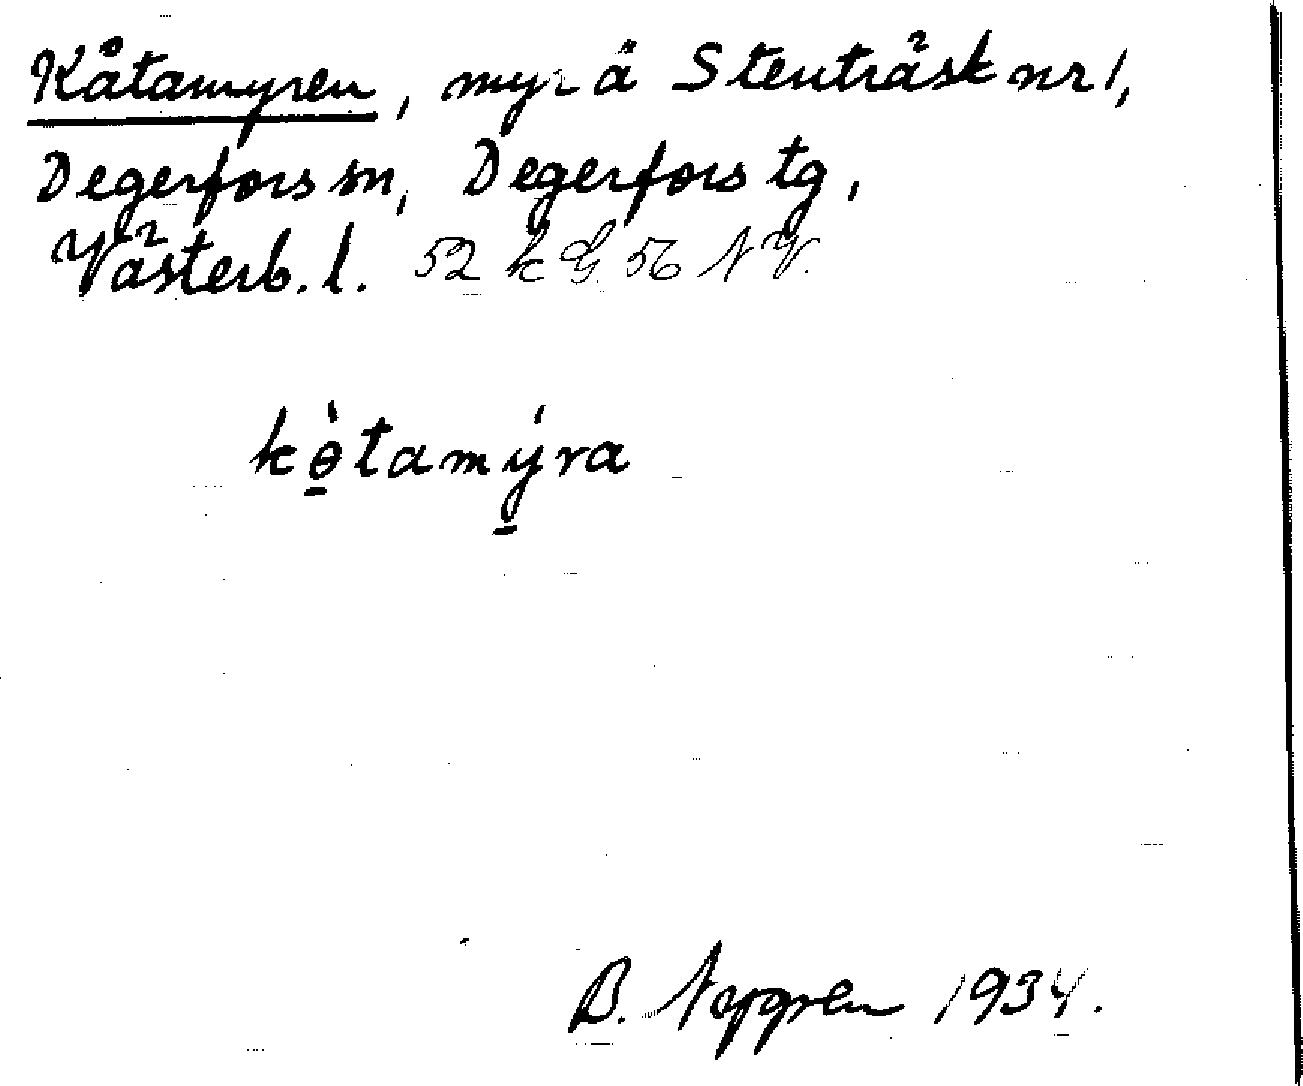 Kåtamyren, myr å Stenträsk nr 1,
Degerfors sn, Degerfors tg,
Västerb. l. 52 k G 56 NV.
kɵ̠̀tamý̠ra
B. Nygren 1934.